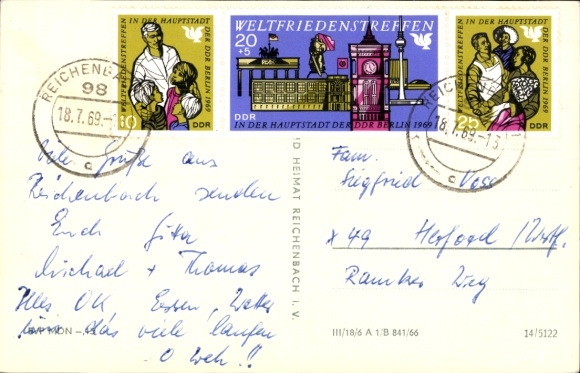 WELTFRIEDENSTREFFEN
IN DER HAUPTSTADT
DER DDR BERLIN 1969
10
DDR
WELTFRIEDENSTREFFEN
20
+5
DDR
IN DER HAUPTSTADT DER DDR BERLIN 1969
WELTFRIEDENSTREFFEN
IN DER HAUPTSTADT
DER DDR BERLIN 1969
25
DDR
REICHENB
98
18.7.69.-1
c
REICHEN
18.7.69.-13
c
Viele Grüße aus
Reichenbach senden
Euch Gita
Michael + Thomas
Alles OK, Essen, Wetter
das viele laufen
O weh!!
Fam.
Siegfried
X 49 Herford / Westf.
Weg
D HEIMAT REICHENBACH I. V.
III/18/6 A 1/B 841/66
14/5122